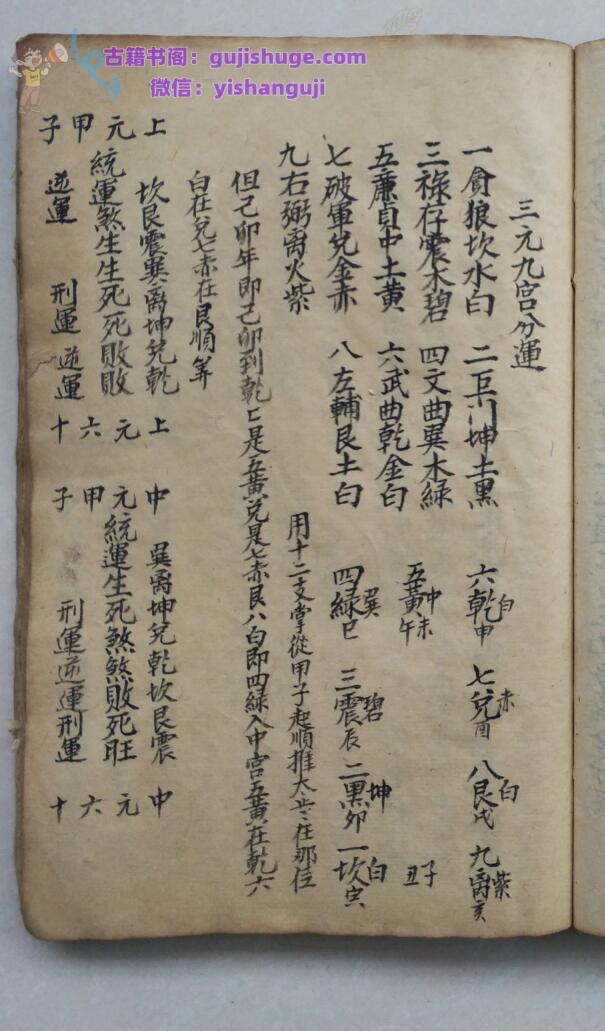 古籍书阁：gujishuge.com
微信：yishanguji
三元九宮分運
一貪狼坎水白　二巨門坤土黑
三祿存震木碧　四文曲巽木綠
五廉貞中土黃　六武曲乾金白
七破軍兌金赤　八左輔艮土白
九右弼离火紫
六乾白申　七兌赤酉　八艮白戌　九离紫亥
五黃中午未　子丑
四綠巽巳　三震碧辰　二黑坤卯　一坎白寅
用十二支掌從甲子起順推太岁在那位
但己卯年即己卯到乾上是五黃兌是七赤艮八白即四綠入中宮五黃在乾六
白在兌七赤在艮順筭
上元甲子
坎艮震巽离坤兌乾
統運煞生生死死敗敗
逆運　刑運逆運
上元六十
中元甲子
巽离坤兌乾坎艮震
統運生死煞煞敗死旺
刑運逆運刑運
中元六十